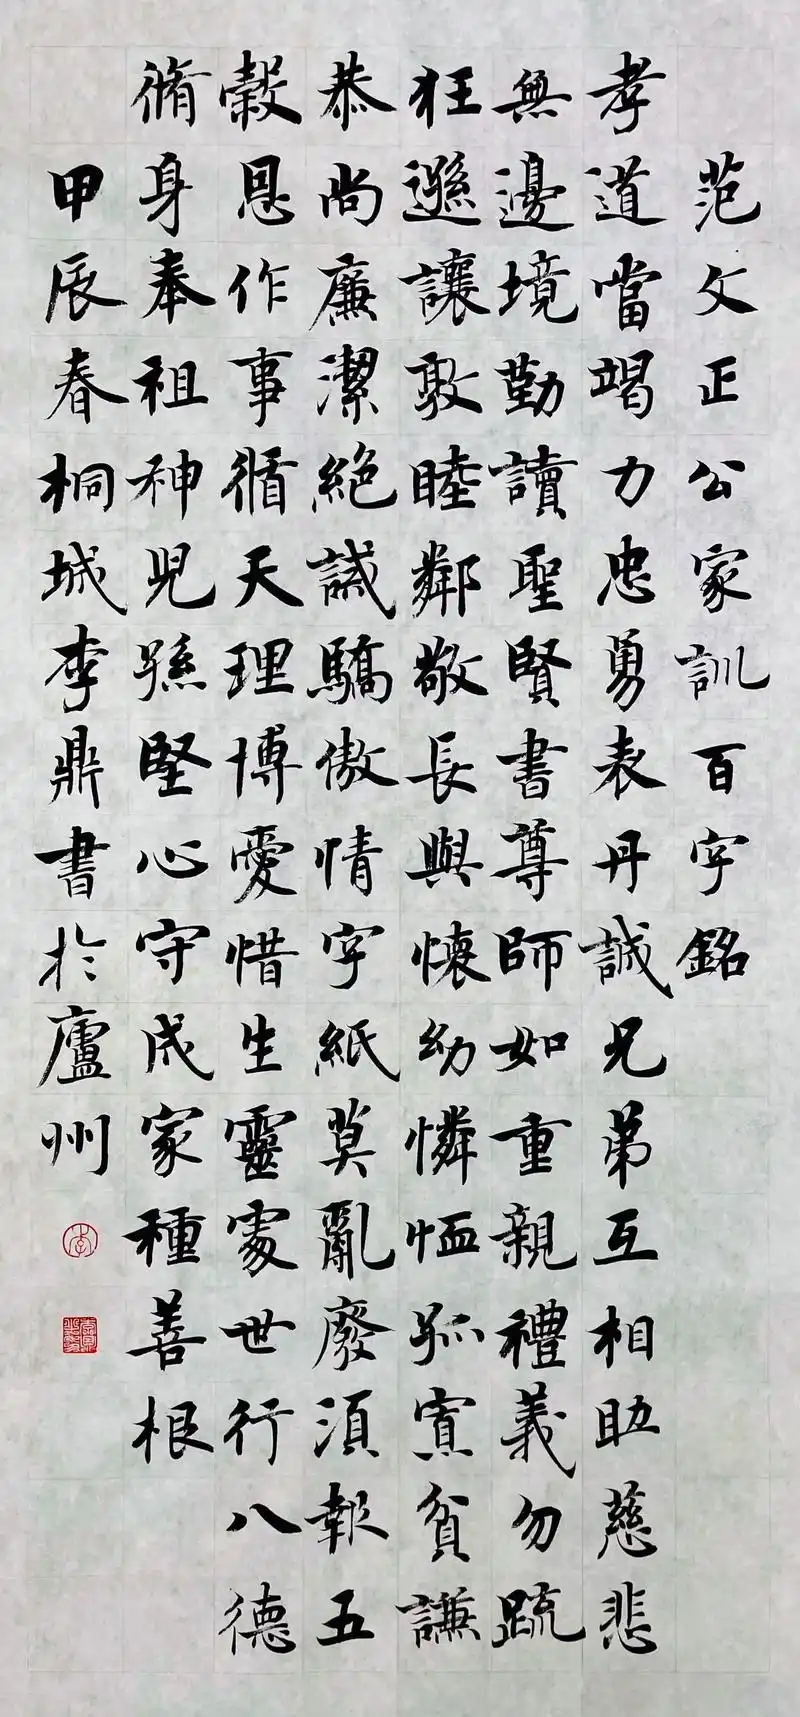 范文正公家訓百字銘
孝道當竭力忠勇表丹誠兄弟互相助慈悲
無邊境勤讀聖賢書尊師如重親禮義勿疏
狂遜讓敦睦鄰敬長與懷幼憐恤孤寡貧謙
恭尚廉潔絕誡驕傲情字紙莫亂廢須報五
穀恩作事循天理博愛惜生靈處世行八德
脩身奉祖神兒孫堅心守成家種善根
甲辰春桐城李鼎書於廬州